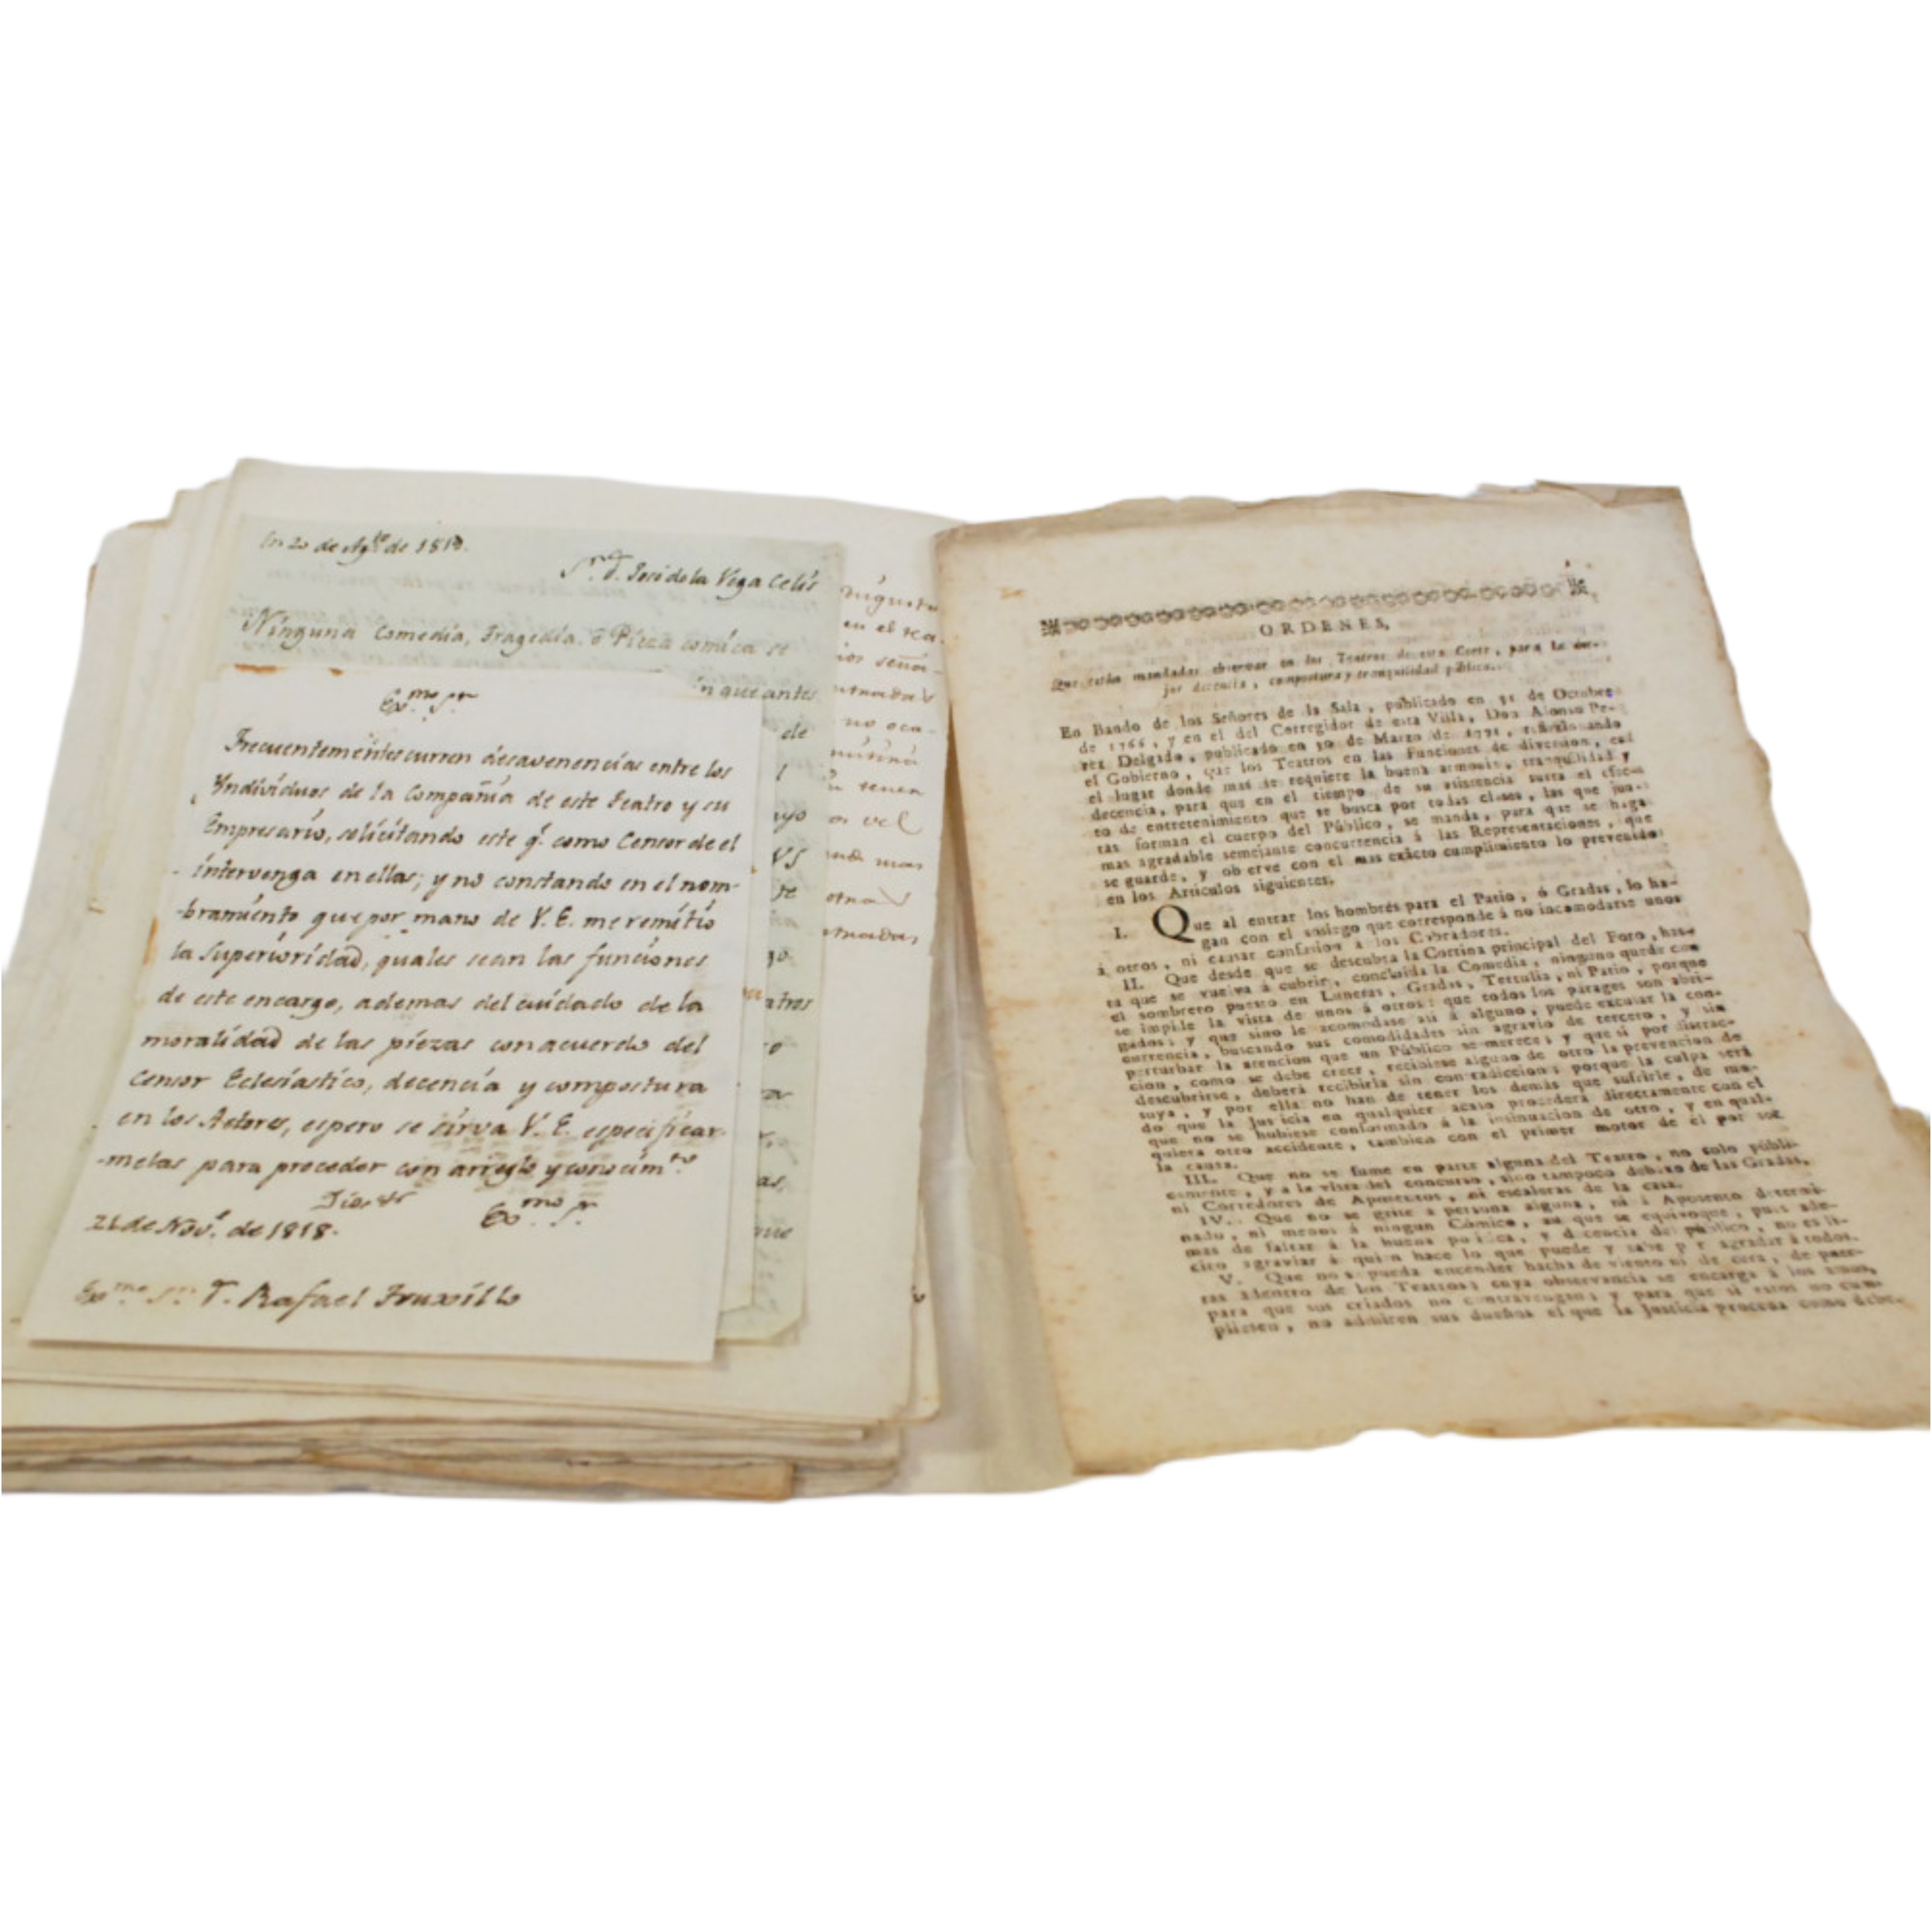 En 20 de Agto de 1818.
Sr. D. José de la Vega Celis
Ninguna Comedia, Tragedia, ó Pieza comica se
n que antes
de
VS
se
atros
que
Exmo. Sr.
Frecuentemente ocurren desavenencias entre los
Yndividuos de la Compañia de este Teatro y su
Empresario, solicitando este q.e como Censor de el
intervenga en ellas; y no constando en el nom-
-bramiento, que por mano de V. E. me remitió
la Superioridad, quales sean las funciones
de este encargo, ademas del cuidado de la
moralidad de las piezas con acuerdo del
Censor Eclesiastico, decencia y compostura
en los Actores, espero se sirva V. E. especificar-
-melas para proceder con arreglo y conocim.to
Dios &c
21 de Nov.e de 1818.
Exmo. Sr.
Exmo. Sr. D. Rafael Truxillo
en el
no oca-
tener
mas
ORDENES,
Que están mandadas observar en los Teatros de esta Corte, para la me-
jor decencia, compostura y tranquilidad pública.
En Bando de los Señores de la Sala, publicado en 31 de Octubre
de 1766, y en el del Corregidor de esta Villa, Don Alonso Pe-
rez Delgado, publicado en 30 de Marzo de
el Gobierno, que los Teatros en las Funciones de diversion, es
el lugar donde mas se requiere la buena armonía, tranquilidad y
decencia, para que en el tiempo de su asistencia surta el efec-
to de entretenimiento que se busca por todas clases, las que jun-
tas forman el cuerpo del Público, se manda, para que se haga
mas agradable semejante concurrencia á las Representaciones, que
se guarde, y observe con el mas exâcto cumplimiento lo prevenido
en los Artículos siguientes.
I. Que al entrar los hombres para el Patio, ó Gradas, lo ha-
gan con el sosiego que corresponde á no incomodarse unos
á otros, ni causar confusion á los Cobradores.
II. Que desde que se descubra la Cortina principal del Foro, has-
ta que se vuelva á cubrir, concluida la Comedia, ninguno quede con
el sombrero puesto en Lunetas, Gradas, Tertulia, ni Patio, porque
se impide la vista de unos á otros: que todos los parages son abri-
gados; y que sino le acomodase así á alguno, puede excusar la con-
currencia, buscando sus comodidades sin agravio de tercero, y sin
perturbar la atencion que un Público se merece; y que si por distrac-
cion, como se debe creer, recibiese alguno de otro la prevencion de
descubrirse, deberá recibirla sin contradiccion; porque la culpa será
suya, y por ella no han de tener los demás que sufrirle, de mo-
do que la Justicia en qualquier acaso procederá directamente con el
que no se hubiese conformado á la insinuacion de otro, y en qual-
quiera otro accidente, tambien con el primer motor de él por sola
la causa.
III. Que no se fume en parte alguna del Teatro, no solo públi-
camente, y á la vista del concurso, sino tampoco debaxo de las Gradas,
ni Corredores de Aposentos, ni escaleras de la casa.
IV. Que no se grite á persona alguna, ni á Aposento determi-
nado, ni menos á ningun Cómico, aunque se equivoque, pues ade-
mas de faltar á la buena política, y decencia del público, no es lí-
cito agraviar á quien hace lo que puede y sabe por agradar á todos.
V. Que no se pueda encender hacha de viento ni de cera, de puer-
tas adentro de los Teatros; cuya observancia se encarga á los amos,
para que sus criados no contravengan; y para que si estos no cum-
pliesen, no admiren sus dueños el que la Justicia proceda como debe.